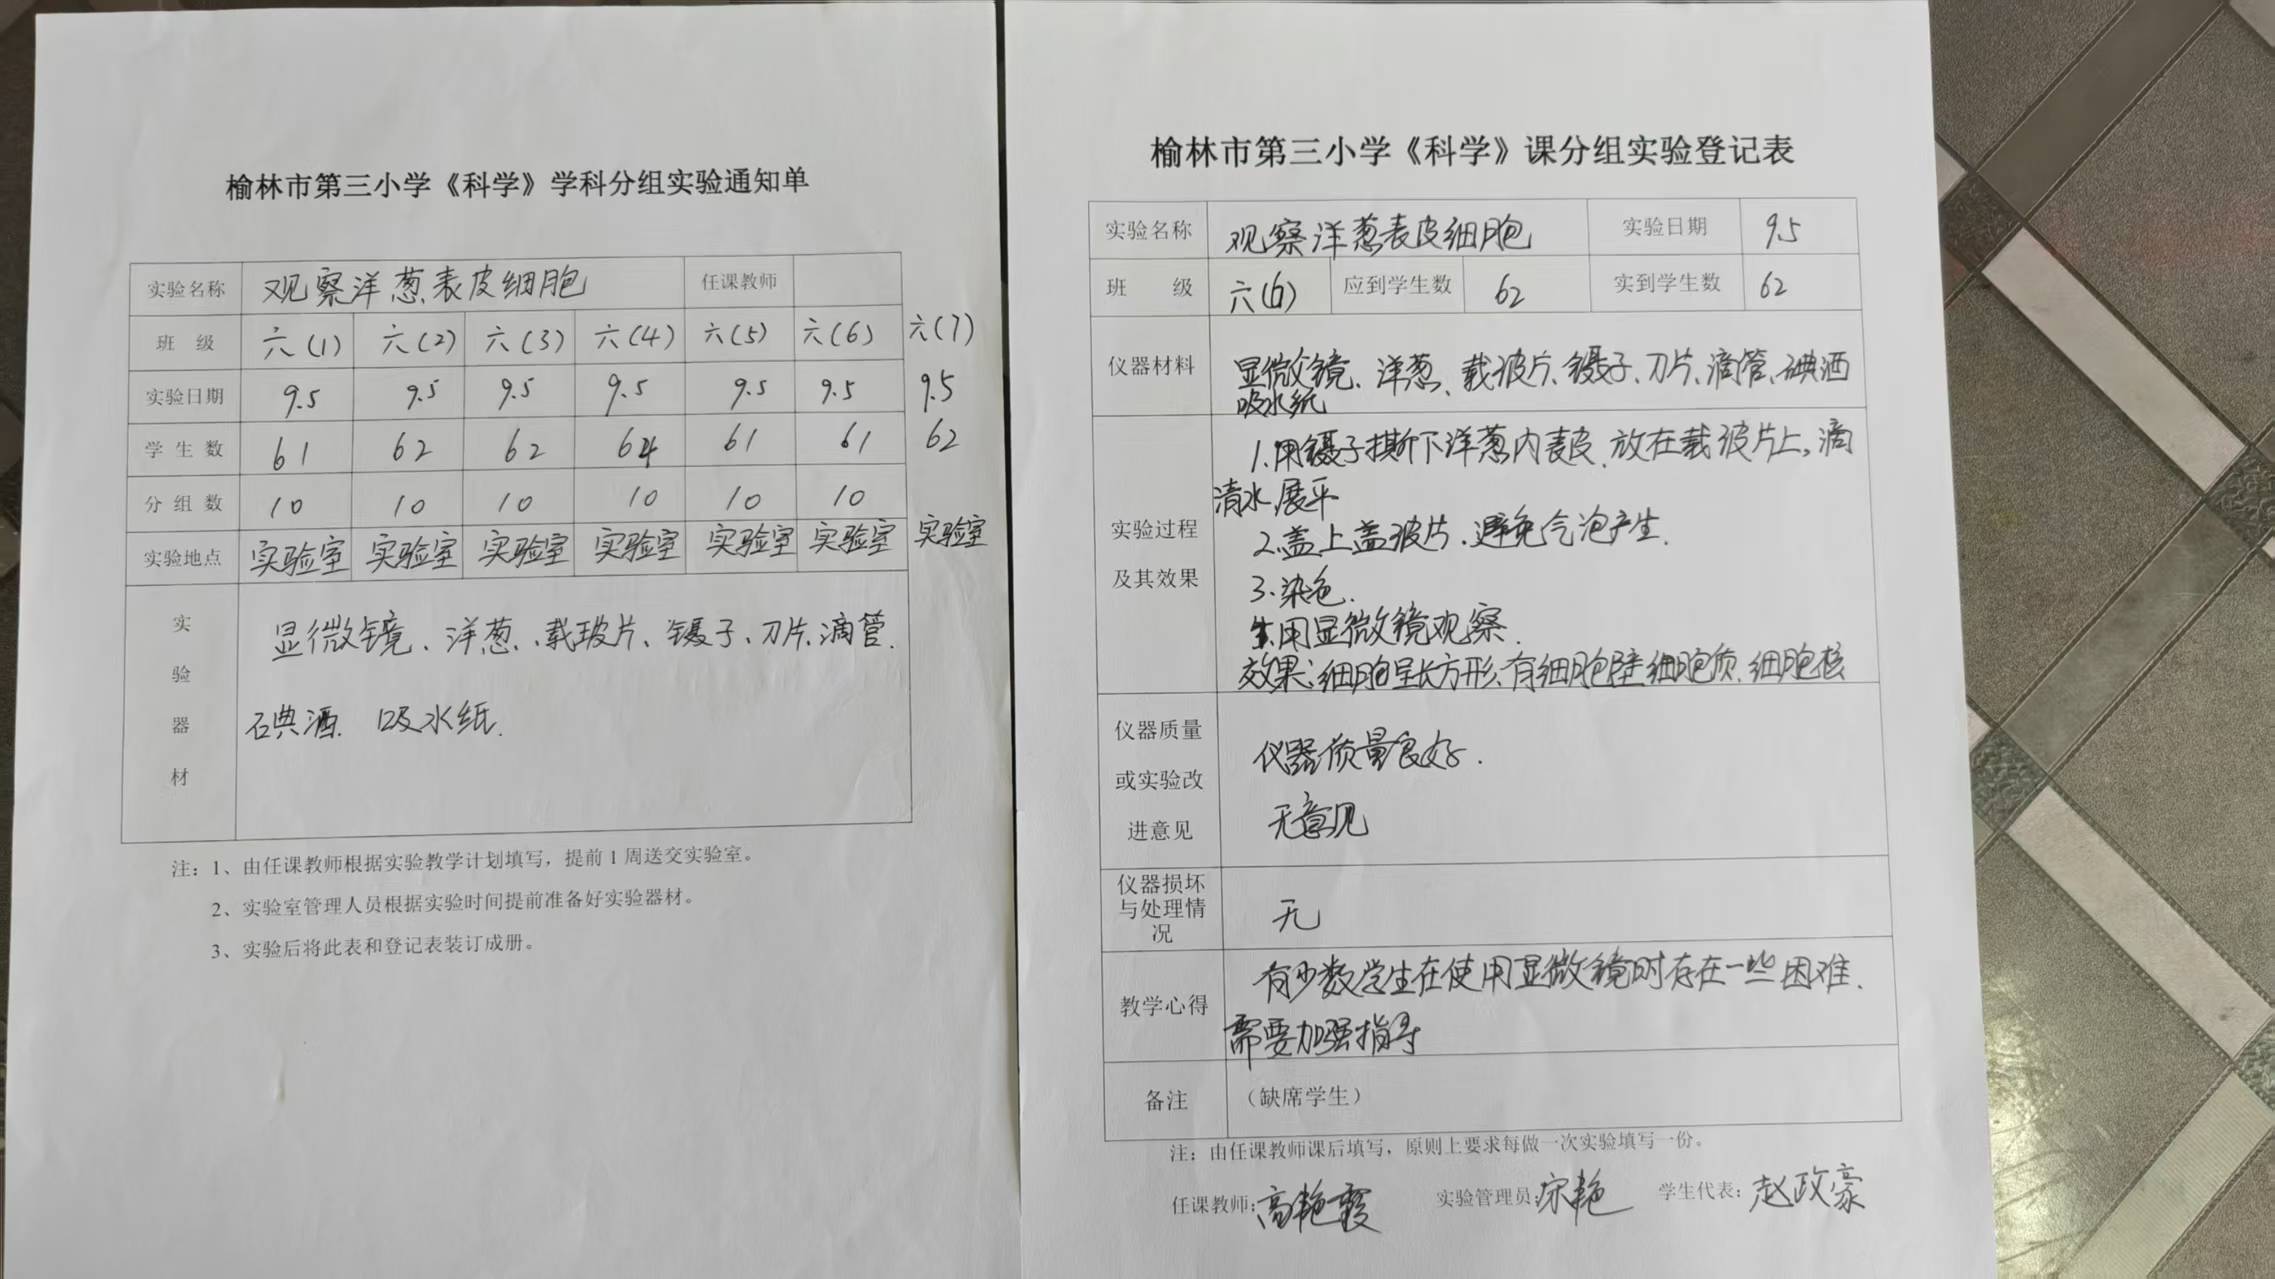 榆林市第三小学《科学》学科分组实验通知单
实验名称 观察洋葱表皮细胞 任课教师
班 级 六(1) 六(2) 六(3) 六(4) 六(5) 六(6) 六(7)
实验日期 9.5 9.5 9.5 9.5 9.5 9.5 9.5
学 生 数 61 62 62 64 61 61 62
分 组 数 10 10 10 10 10 10
实验地点 实验室 实验室 实验室 实验室 实验室 实验室 实验室
实验器材
显微镜、洋葱、载玻片、镊子、刀片、滴管.
碘酒. 吸水纸.
注：1、由任课教师根据实验教学计划填写，提前1周送交实验室。
2、实验室管理人员根据实验时间提前准备好实验器材。
3、实验后将此表和登记表装订成册。
榆林市第三小学《科学》课分组实验登记表
实验名称 观察洋葱表皮细胞 实验日期 9.5
班 级 六(6) 应到学生数 62 实到学生数 62
仪器材料 显微镜、洋葱、载玻片、镊子、刀片、滴管、碘酒
吸水纸
实验过程
及其效果
1.用镊子撕下洋葱内表皮.放在载玻片上,滴
清水.展平
2.盖上盖玻片.避免气泡产生.
3.染色.
4.用显微镜观察.
效果:细胞呈长方形、有细胞壁.细胞质.细胞核
仪器质量
或实验改
进意见
仪器质量良好.
无意见
仪器损坏
与处理情
况
无
教学心得
有少数学生在使用显微镜时存在一些困难.
需要加强指导
备注 （缺席学生）
注：由任课教师课后填写，原则上要求每做一次实验填写一份。
任课教师：高艳霞 实验管理员：宋艳 学生代表：赵政豪